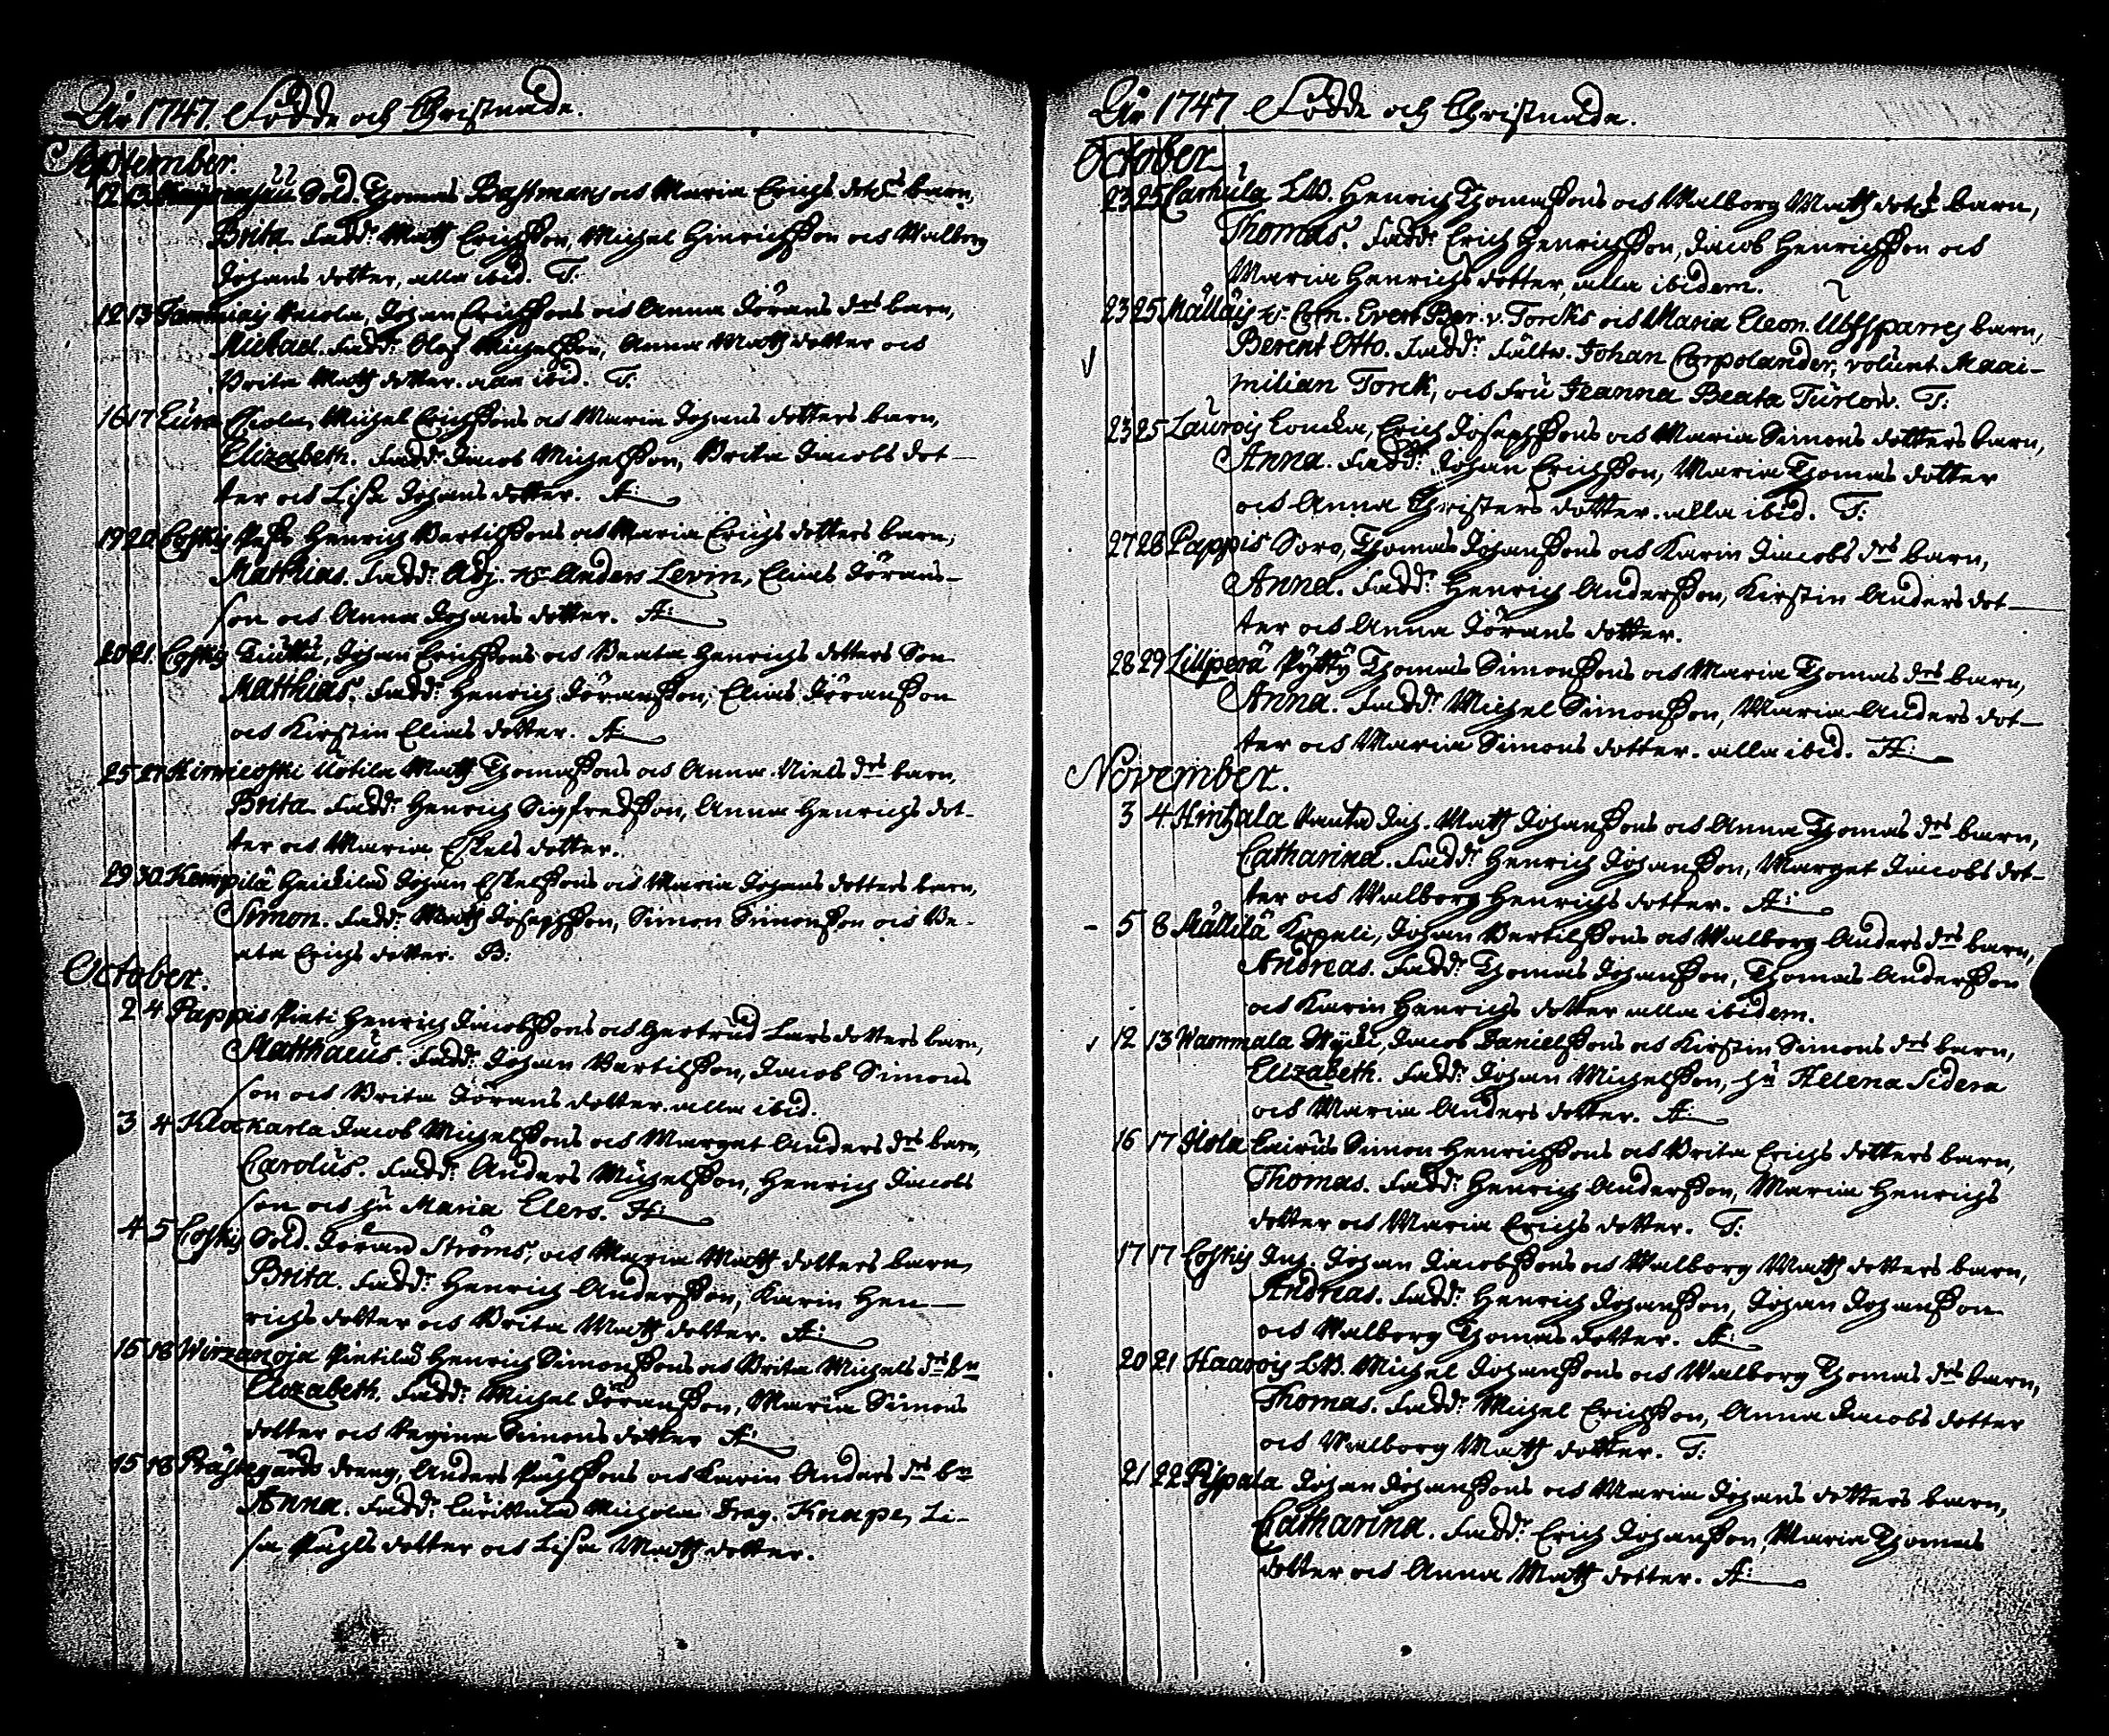 Åhr 1747. Födde och Christnade.
September.
12 13 Sold. Thomas Bastmans och Maria Erichs dotrs barn,
Brita. Fadd: Matth Erichsson, Michel Hinrichsson och Walborg
Johans dotter, alla ibid. T:
12 13 Johan Erichssons och Anna Jörans drs barn,
Michael. Fadd: Olof Michelsson, Anna Matth dotter och
Brita Matth dotter. alla ibid. T:
16 17 Eura Michel Erichssons och Maria Johans dotters barn,
Elizabeth. Fadd: Jacob Michelsson, Brita Jacobs dot-
ter och Lisa Johans dotter. A:
19 20 Coskis Henrich Bertilssons och Maria Erichs dotters barn,
Matthias. Fadd: Adj. Hr Anders Levin, Elias Jörans-
son och Anna Johans dotter. A:
20 21 Coskis Johan Erichssons och Beata Henrichs dotters Son
Matthias. Fadd: Henrich Jöransson, Elias Jöransson
och Kirstin Elias dotter. A:
25 27 Hirwicoski Uotila Matth Thomassons och Anna Niels drs barn,
Brita. Fadd: Henrich Sigfredsson, Anna Henrichs dot-
ter och Maria Eskels dotter.
29 30 Kempilä Heickilä Johan Eskelssons och Maria Johans dotters barn,
Simon. Fadd: Matth Josephsson, Simon Simonsson och Be-
ata Erichs dotter. B:
October.
2 4 Pappis Pieti Henrich Jacobssons och Hertrud Lars dotters barn,
Matthaeus. Fadd: Johan Bertilsson, Jacob Simons
son och Brita Jörans dotter. alla ibid.
3 4 Klockarla Jacob Michelssons och Marget Anders drs barn,
Carolus. Fadd: Anders Michelsson, Henrich Jacobs
son och hu Maria Elers. A:
4 5 Coskis Sold. Jöran Ströms, och Maria Matth dotters barn,
Brita. Fadd: Henrich Andersson, Karin Hen-
richs dotter och Brita Matth dotter. A:
15 18 Wirzanoja Pietilä Henrich Simonssons och Brita Michels drs bn
Elizabeth. Fadd: Michel Jöransson, Maria Simons
dotter och Regina Simons dotter A:
15 18 Prästegårds dreng, Anders Påhlssons och Karin Anders drs bn
Anna. Fadd: Michola Drag. Knape, Li-
sa Påhls dotter och Lisa Matth dotter.
Åhr 1747 Födde och Christnade.
October
23 25 Carhula LW. Henrich Thomassons och Walborg Matth dotrs barn,
Thomas. Fadd: Erich Henrichsson, Jacob Henrichsson och
Maria Henrichs dotter, alla ibidem.
23 25 Mälläis Hr Corn. Evert Ber. v. Torcks och Maria Eleon. Ulfsparres barn,
Berent Otto. Fadd: Fältw. Johan Carpolander, volunt. Maxi-
milian Torck, och Fru Jeanna Beata Turlow. T:
23 25 Laurois Concka, Erich Josephssons och Maria Simons dotters barn,
Anna. Fadd: Johan Erichsson, Maria Thomas dotter
och Anna Christers dotter. alla ibid. T:
27 28 Pappis Soro, Thomas Johanssons och Karin Jacobs drs barn,
Anna. Fadd: Henrich Andersson, Kirstin Anders dot-
ter och Anna Jörans dotter.
28 29 Lillperä Pytty Thomas Simonssons och Maria Thomas drs barn,
Anna. Fadd: Michel Simonsson, Maria Anders dot-
ter och Maria Simons dotter. alla ibid. A:
November.
3 4 Hinzala Matth Johanssons och Anna Thomas drs barn,
Catharina. Fadd: Henrich Johansson, Marget Jacobs dot-
ter och Walborg Henrichs dotter. A:
5 8 Mällilä Kopeli, Johan Bertilssons och Walborg Anders drs barn,
Andreas. Fadd: Thomas Johansson, Thomas Andersson
och Karin Henrichs dotter alla ibidem.
12 13 Wammala Jacob Danielssons och Kirstin Simons drs barn,
Elizabeth. Fadd: Johan Michelsson, hu Helena Sidera
och Maria Anders dotter. A:
16 17 Isola Simon Henrichssons och Brita Erichs dotters barn,
Thomas. Fadd: Henrich Andersson, Maria Henrichs
dotter och Maria Erichs dotter. T:
17 17 Coskis Inh. Johan Jacobssons och Walborg Matth dotters barn,
Andreas. Fadd: Henrich Johansson, Johan Johansson
och Walborg Thomas dotter. A:
20 21 Haarois LW. Michel Johanssons och Walborg Thomas drs barn,
Thomas. Fadd: Michel Erichsson, Anna Jacobs dotter
och Walborg Matth dotter. T:
21 22 Pijpala Johan Johanssons och Maria Johans dotters barn,
Catharina. Fadd: Erich Johansson, Maria Thomas
dotter och Anna Matth dotter. A: